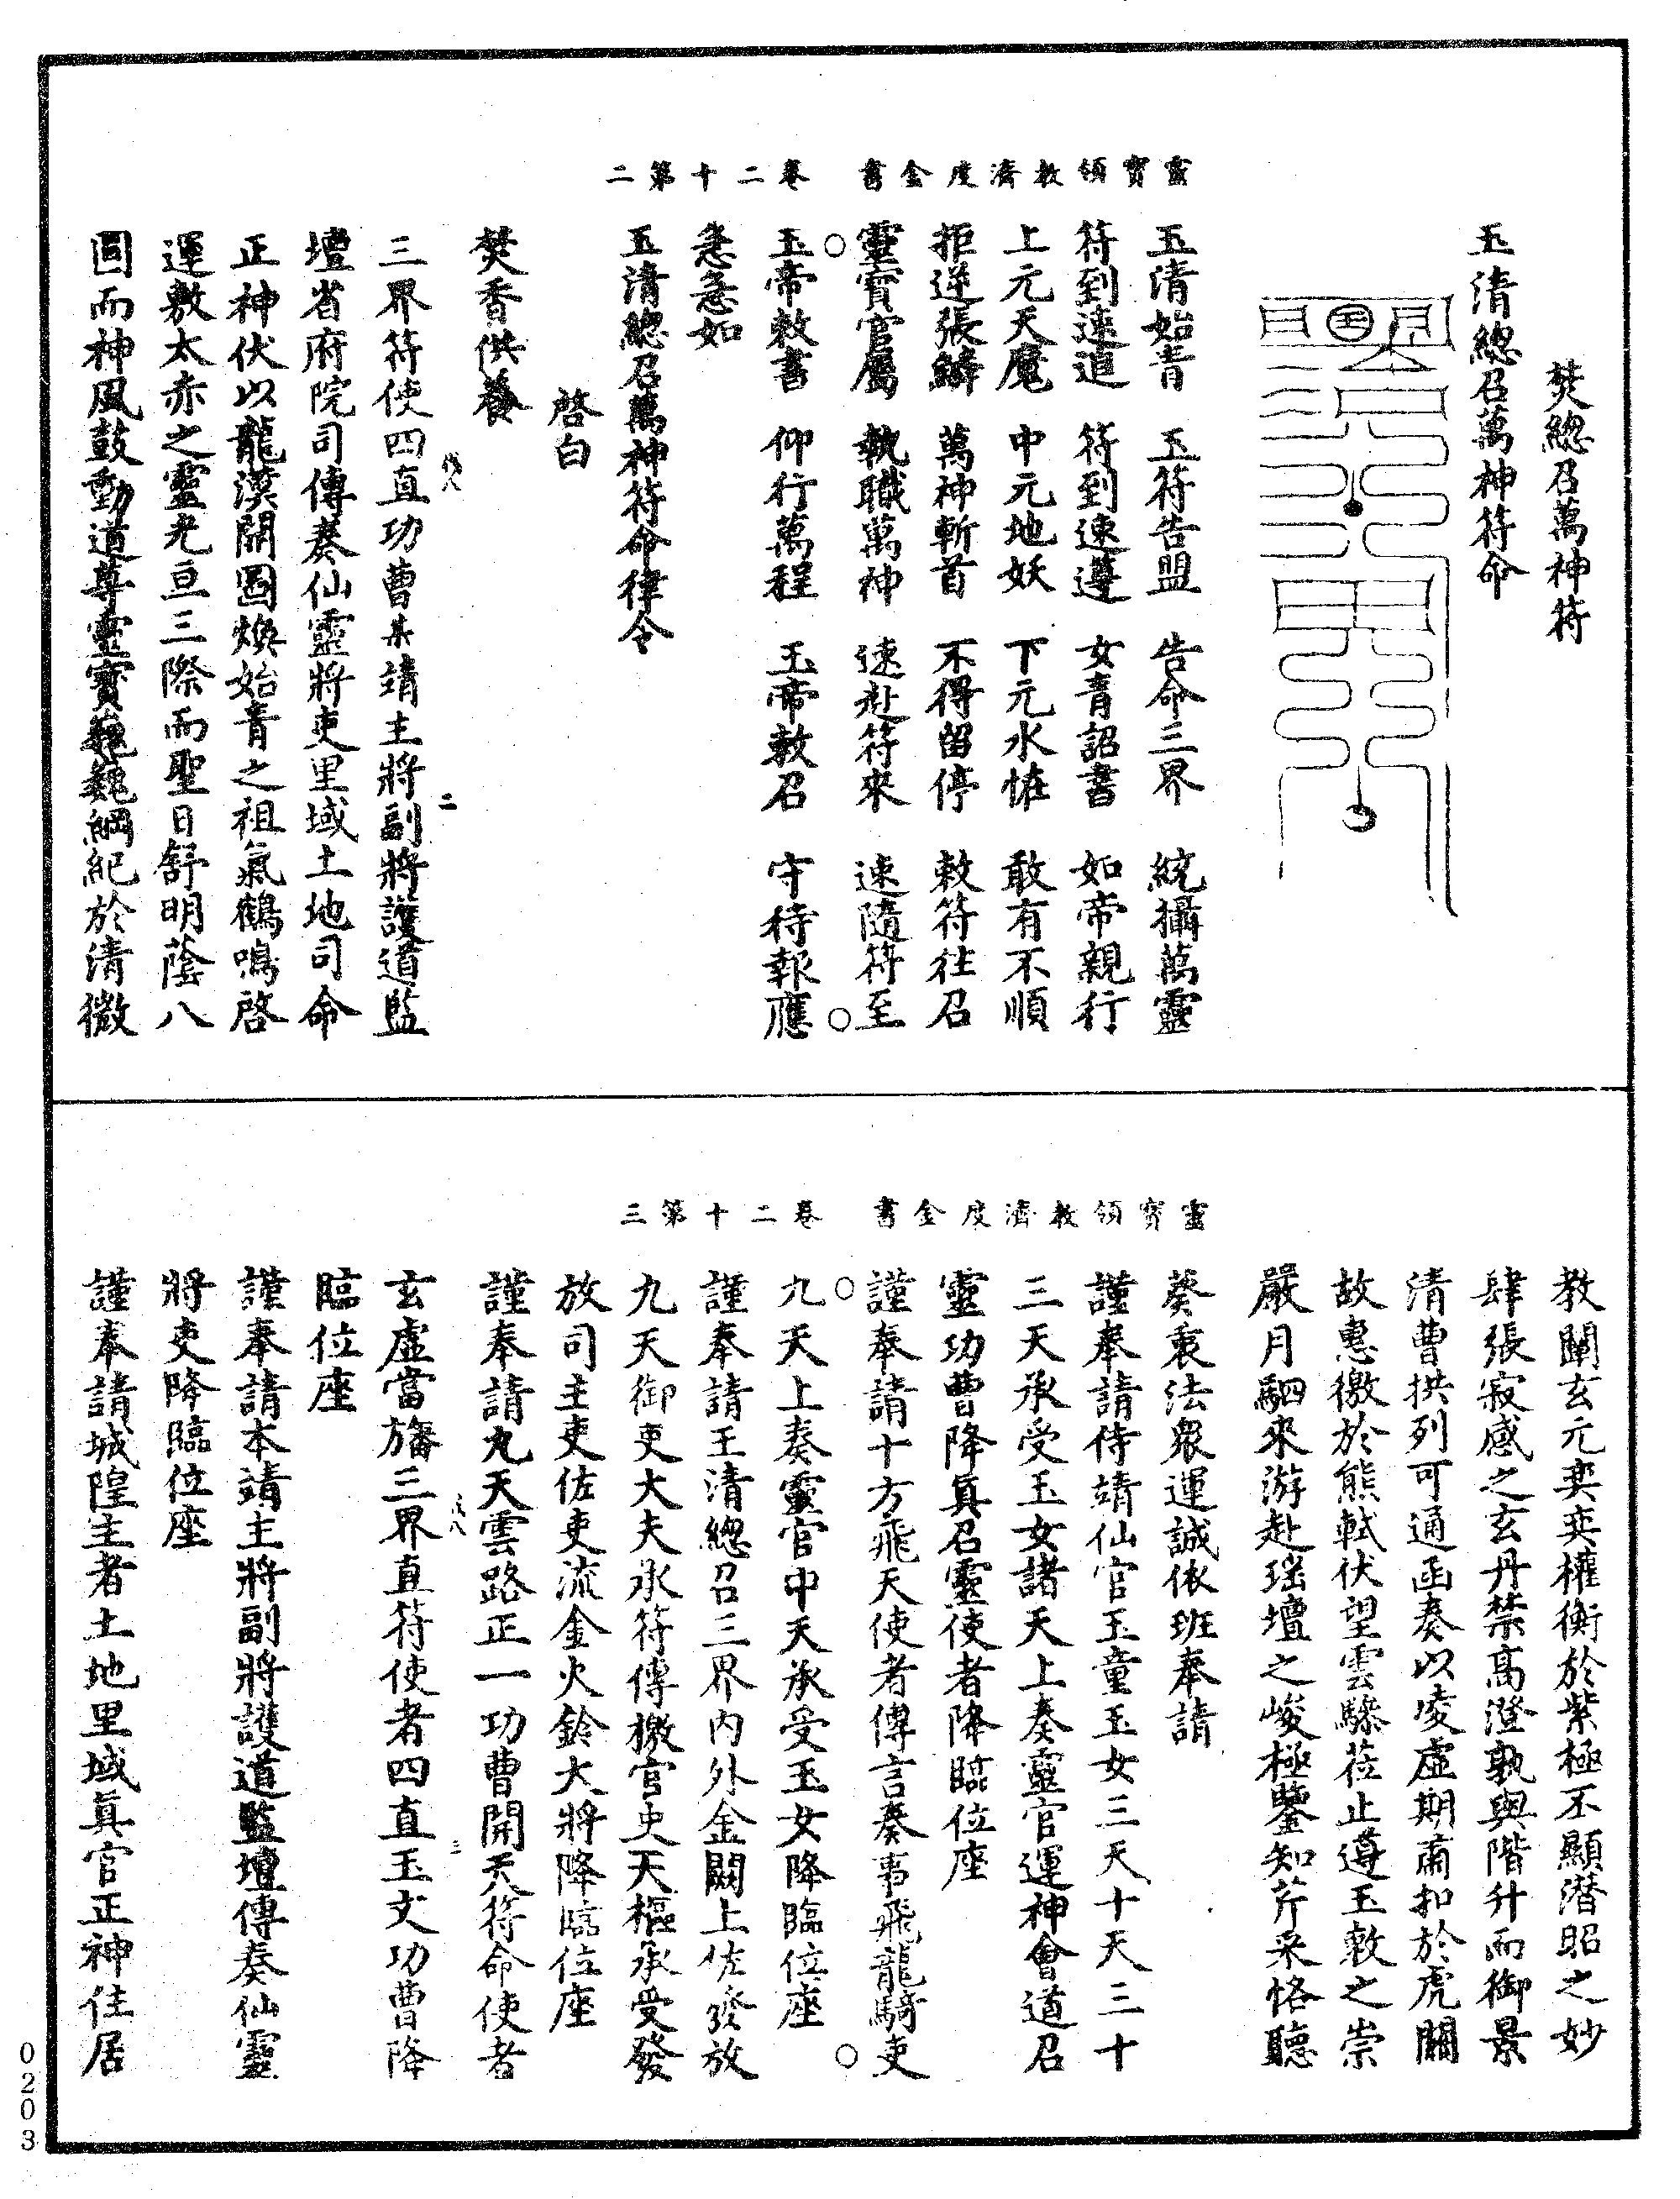 焚總召萬神符
玉清總召萬神符命
靈寶領教濟度金書　卷二十第二
玉清始青　玉符告盟　告命三界　統攝萬靈
符到速追　符到速遵　女青詔書　如帝親行
上元天魔　中元地妖　下元水恠　敢有不順
拒逆張鱗　萬神斬首　不得留停　敕符往召
靈寶官屬　執職萬神　速赴符來　速隨符至
玉帝敕書　仰行萬程　玉帝敕召　守待報應
急急如
玉清總召萬神符命律令
啓白
焚香供養
三界符使四直功曹某靖主將副將護道監
壇省府院司傳奏仙靈將吏里域土地司命
正神伏以龍漢開圖煥始青之祖氣鶴鳴啓
運敷太赤之靈光亘三際而聖日舒明蔭八
圓而神風鼓動道尊靈寶巍巍綱紀於清微
靈寶領教濟度金書　卷二十第三
教闡玄元奕奕權衡於紫極丕顯潛昭之妙
肆張寂感之玄丹禁高澄孰與階升而御景
清曹拱列可通函奏以凌虛期肅扣於虎關
故惠徼於熊軾伏望雲驂莅止遵玉敕之崇
嚴月駟來游赴瑤壇之峻極鑒知芹采恪聽
葵衷法衆運誠依班奉請
謹奉請侍靖仙官玉童玉女三天十天三十
三天承受玉女諸天上奏靈官運神會道召
靈功曹降真召靈使者降臨位座
謹奉請十方飛天使者傳言奏事飛龍騎吏
九天上奏靈官中天承受玉女降臨位座
謹奉請王清總召三界內外金闕上佐發放
九天御吏大夫承符傳檄官吏天樞承受發
放司主吏佐吏流金火鈴大將降臨位座
謹奉請九天雲路正一功曹開天符命使者
玄虛當旛三界直符使者四直玉文功曹降
臨位座
謹奉請本靖主將副將護道監壇傳奏仙靈
將吏降臨位座
謹奉請城隍主者土地里域真官正神住居
0203